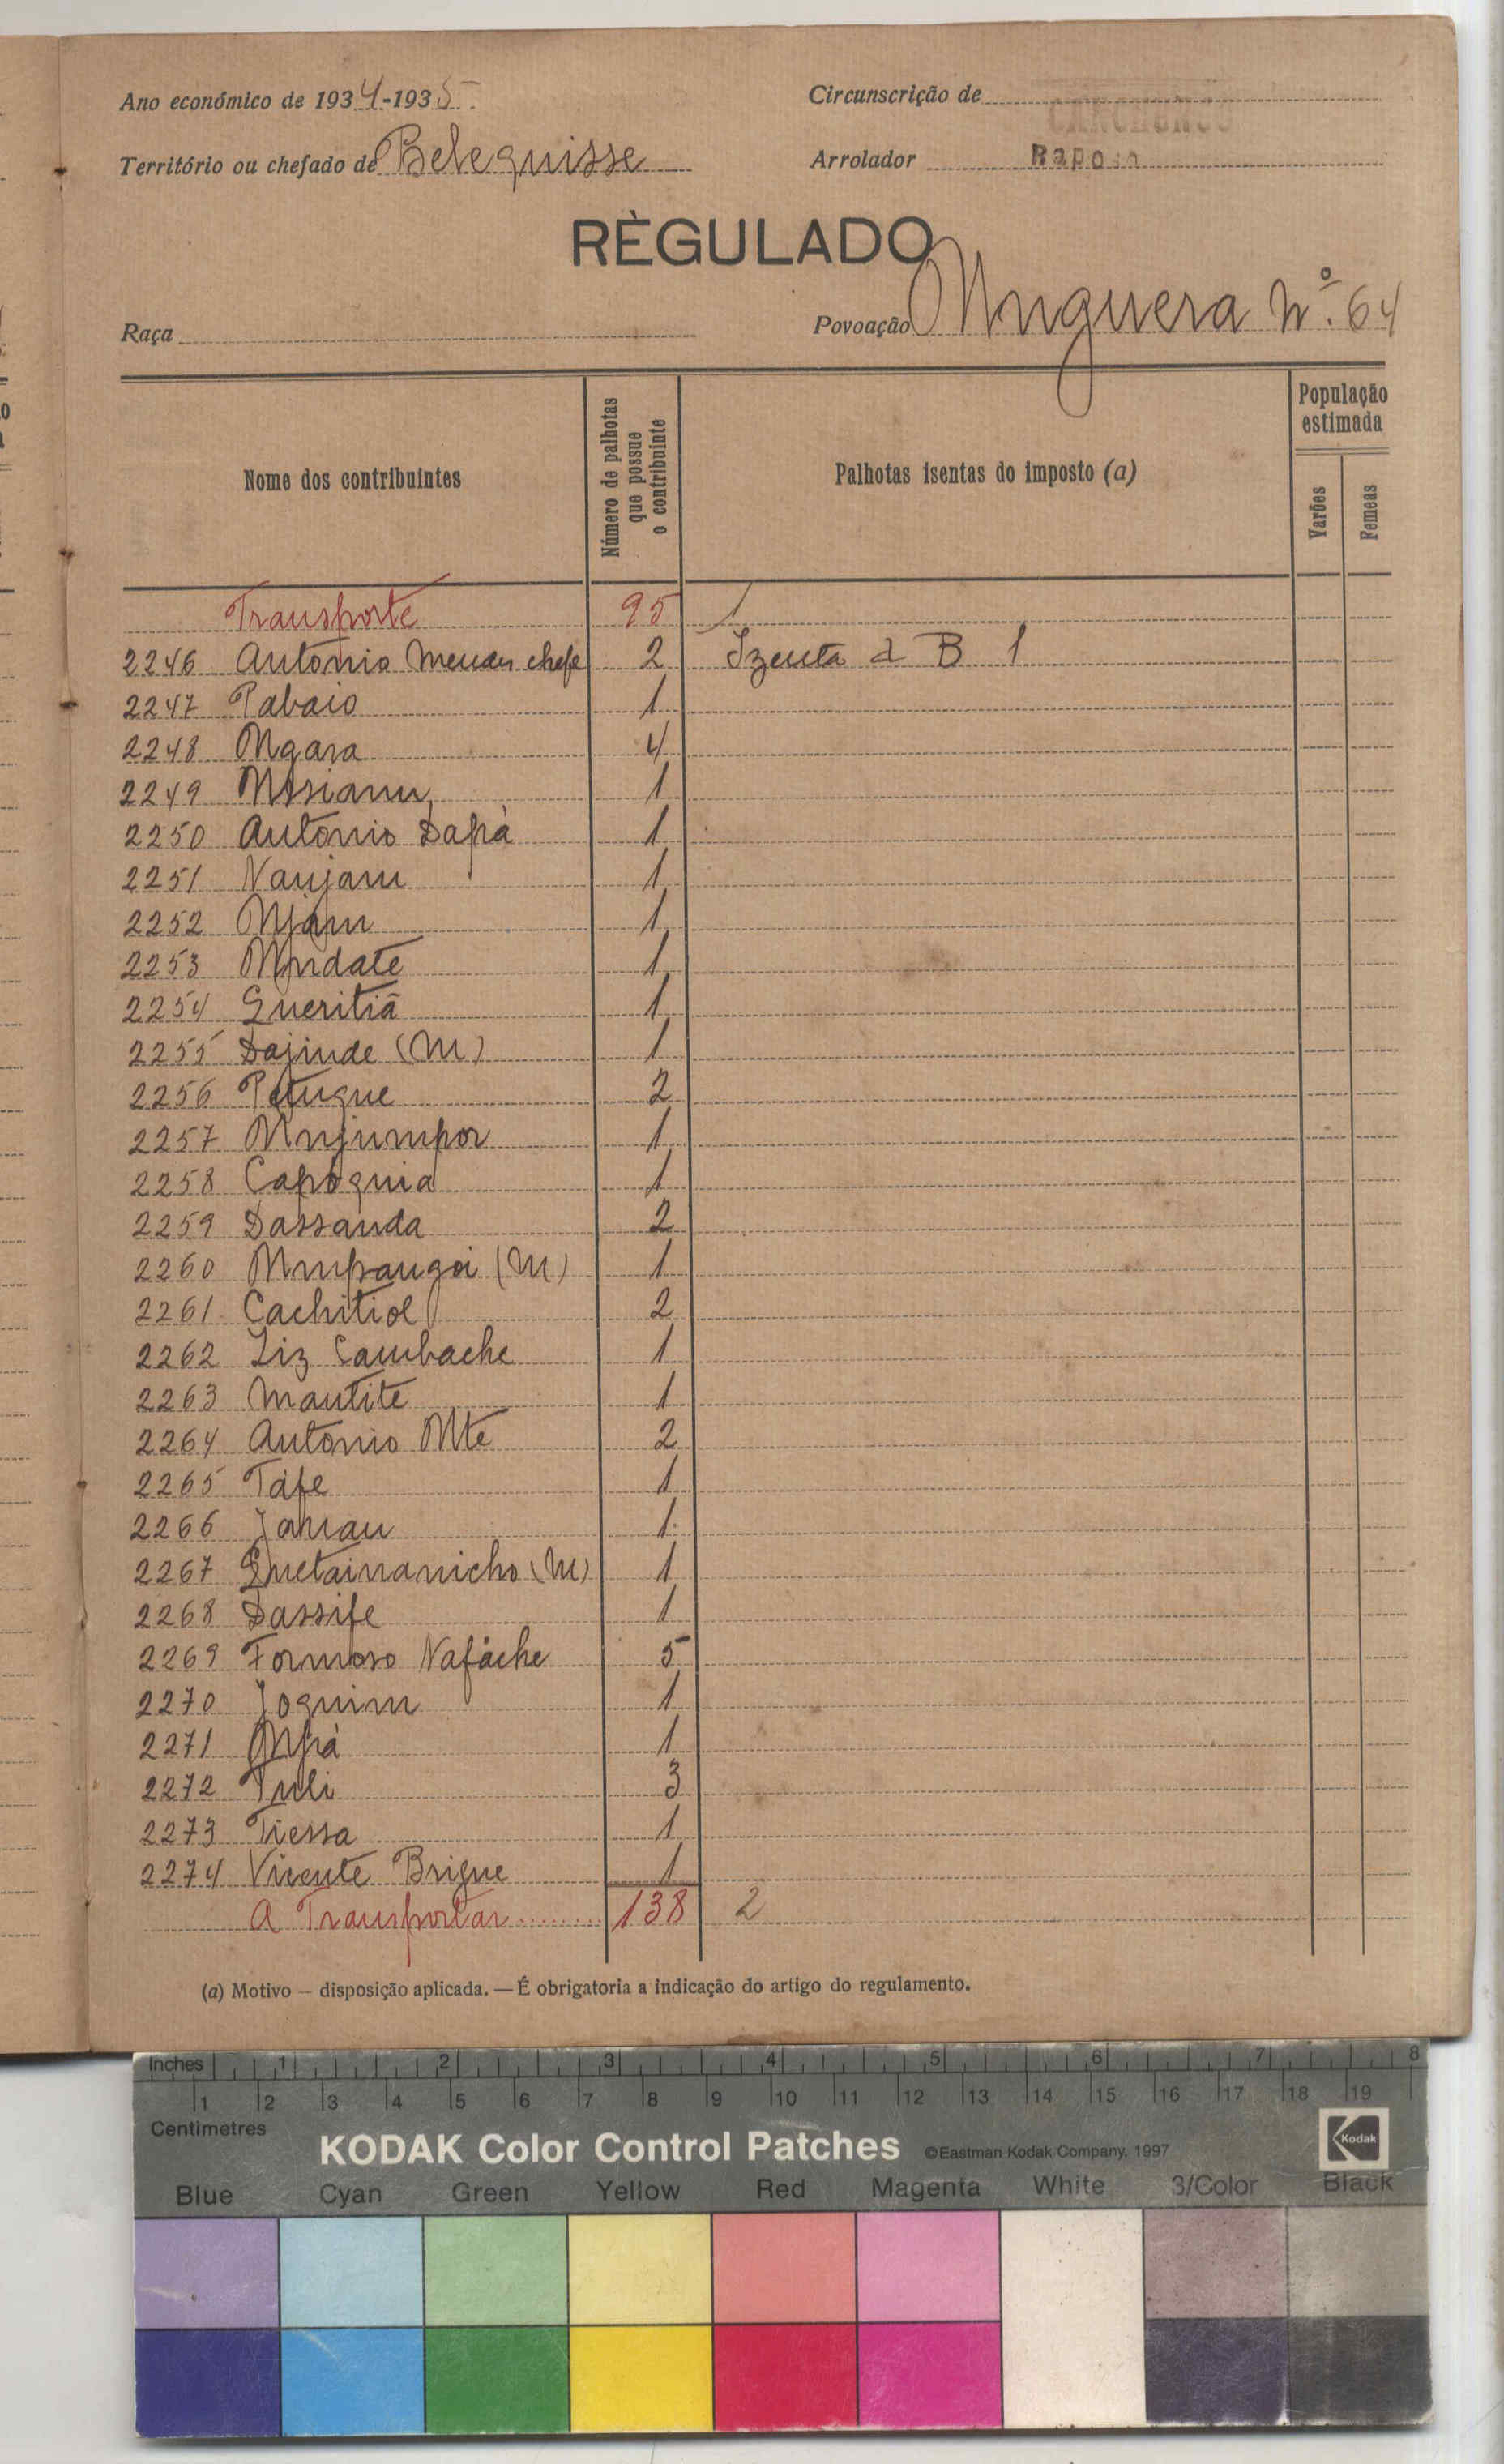 Ano económico de 1934-1935
Circunscrição de CANCHUNGO
Território ou chefado de Belequisse
Arrolador Raposo
RÈGULADO
Raça
Povoação Unguera Nº. 64
Nome dos contribuintes
Número de palhotas que possue o contribuinte
Palhotas isentas do imposto (a)
População estimada
Varões
Femeas
Transporte 95 1
2246 Antonio Mendes chefe 2 Izenta d B 1
2247 Pabaio 1
2248 Ngara 4
2249 1
2250 Antonio Dapá 1
2251 Naujam 1
2252 Njam 1
2253 Mndate 1
2254 Queritiã 1
2255 Dajinde (M) 1
2256 Petuque 2
2257 Unjumpor 1
2258 Capóquia 1
2259 Dassanda 2
2260 (M) 1
2261 Cachitiol 2
2262 Liz Cambache 1
2263 Mantite 1
2264 Antonio Nte 2
2265 Tafe 1
2266 Janau 1
2267 (M) 1
2268 Dassife 1
2269 Formoso Nafache 5
2270 Joquim 1
2271 Npá 1
2272 Tuli 3
2273 Tiessa 1
2274 Vicente Brique 1
A Transportar........ 138 2
(a) Motivo — disposição aplicada. — É obrigatoria a indicação do artigo do regulamento.
Inches 1 2 3 4 5 6 7 8
1 2 3 4 5 6 7 8 9 10 11 12 13 14 15 16 17 18 19
Centimetres
KODAK Color Control Patches ©Eastman Kodak Company, 1997 Kodak
Blue Cyan Green Yellow Red Magenta White 3/Color Black